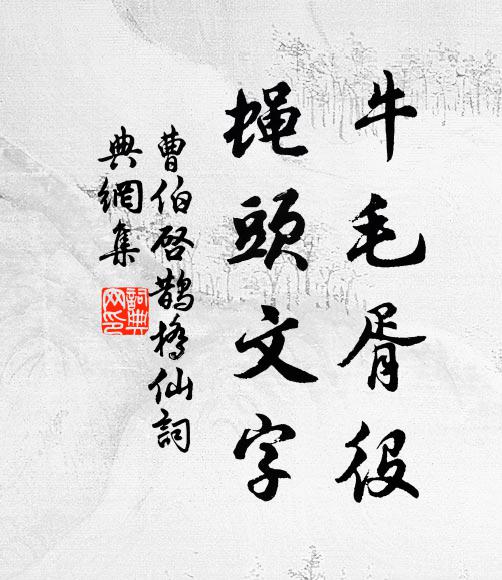 牛毛胥役
蝇頭文字
曹伯啓鵲橋仙詞
典網集
詞典網印